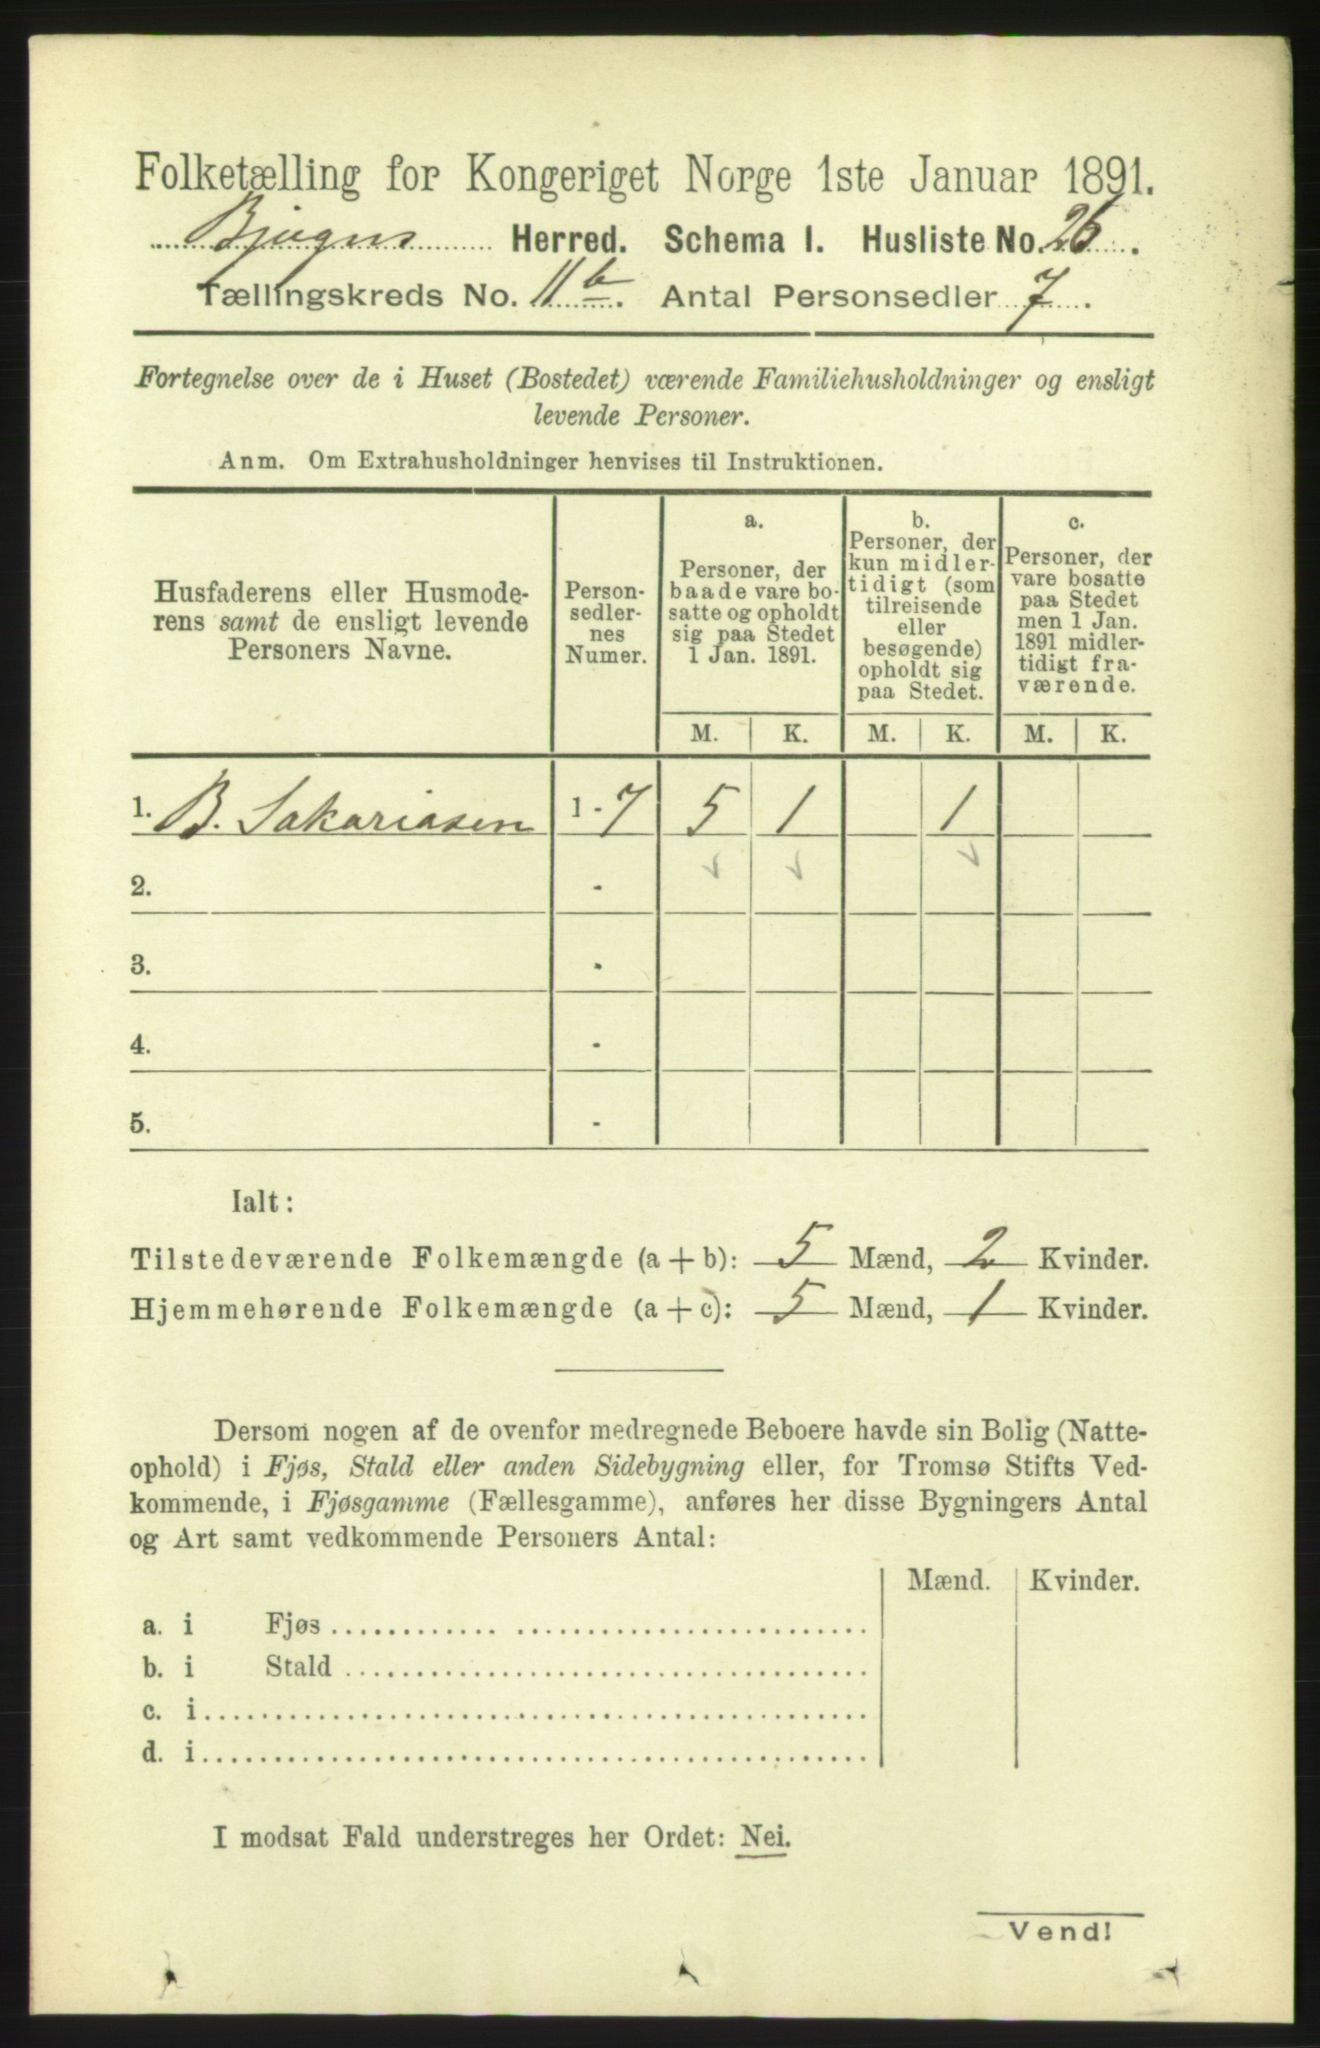 Folketælling for Kongeriget Norge 1ste Januar 1891.
Bjugns Herred. Schema I. Husliste No. 26.
Tællingskreds No. 11 b. Antal Personsedler 7.
Fortegnelse over de i Huset (Bostedet) værende Familiehusholdninger og ensligt
levende Personer.
Anm. Om Extrahusholdninger henvises til Instruktionen.
Husfaderens eller Husmode-
rens samt de ensligt levende
Personers Navne.
Person-
sedler-
nes
Numer.
a.
Personer, der
baade vare bo-
satte og opholdt
sig paa Stedet
1 Jan. 1891.
b.
Personer, der
kun midler-
tidigt (som
tilreisende
eller
besøgende)
opholdt sig
paa Stedet.
c.
Personer, der
vare bosatte
paa Stedet
men 1 Jan.
1891 midler-
tidigt fra-
værende.
M. K. M. K. M. K.
1. B. Sakariasen 1 - 7 5 1 1
2. -
3. -
4. -
5. -
Ialt:
Tilstedeværende Folkemængde (a + b): 5 Mænd, 2 Kvinder.
Hjemmehørende Folkemængde (a + c): 5 Mænd, 1 Kvinder.
Dersom nogen af de ovenfor medregnede Beboere havde sin Bolig (Natte-
ophold) i Fjøs, Stald eller anden Sidebygning eller, for Tromsø Stifts Ved-
kommende, i Fjøsgamme (Fællesgamme), anføres her disse Bygningers Antal
og Art samt vedkommende Personers Antal:
Mænd. Kvinder.
a. i Fjøs
b. i Stald
c. i
d. i
I modsat Fald understreges her Ordet: Nei.
Vend!